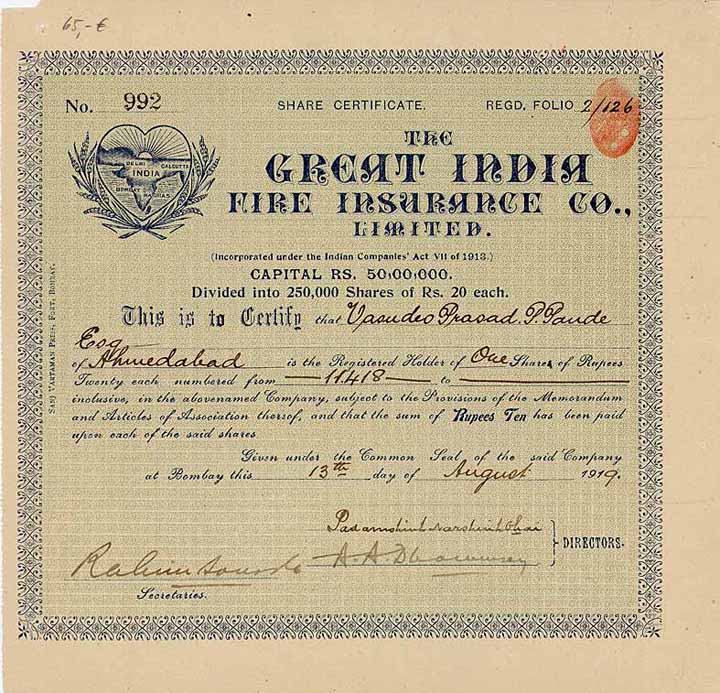 65,-€
No. 992 SHARE CERTIFICATE. REGD. FOLIO 2/126
THE
GREAT INDIA
FIRE INSURANCE CO.,
LIMITED.
DELHI CALCUTTA
INDIA
BOMBAY MADRAS
(Incorporated under the Indian Companies' Act VII of 1913.)
CAPITAL RS. 50,00,000.
Divided into 250,000 Shares of Rs. 20 each.
This is to Certify that Vasudeo Prasad. P. Pande
Esq
of Ahmedabad is the Registered Holder of One Share of Rupees
Twenty each numbered from — 11418 — to —
inclusive, in the abovenamed Company, subject to the Provisions of the Memorandum
and Articles of Association thereof, and that the sum of Rupees Ten has been paid
upon each of the said shares
Given under the Common Seal of the said Company
at Bombay this 13th day of August 1919.
DIRECTORS.
Secretaries.
SANJ VARTAMAN PRESS, FORT, BOMBAY.